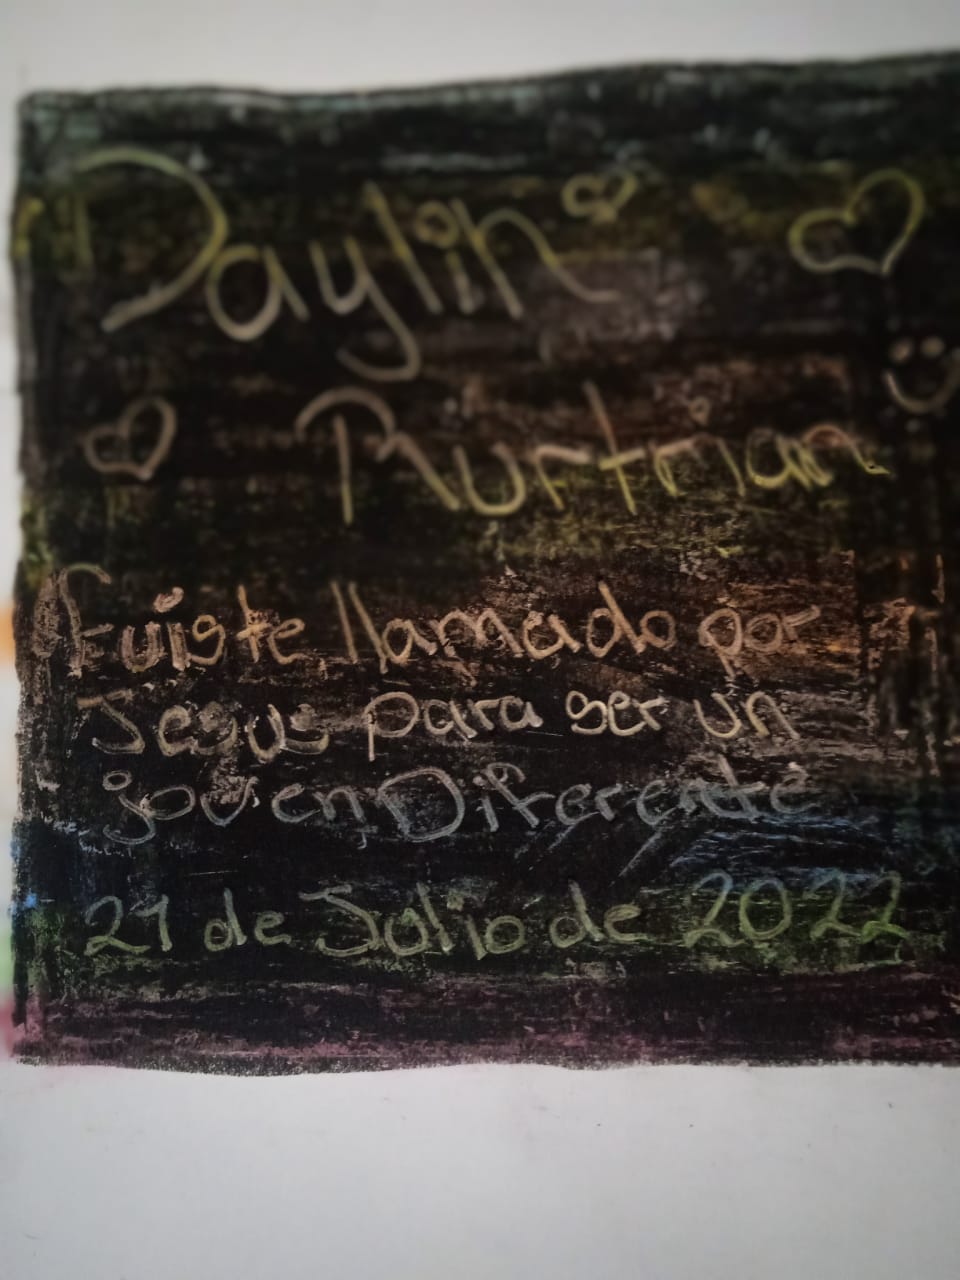 Daylin
Rurtrian
Fuiste llamado por
Jesus para ser un
joven Diferente
21 de Julio de 2022